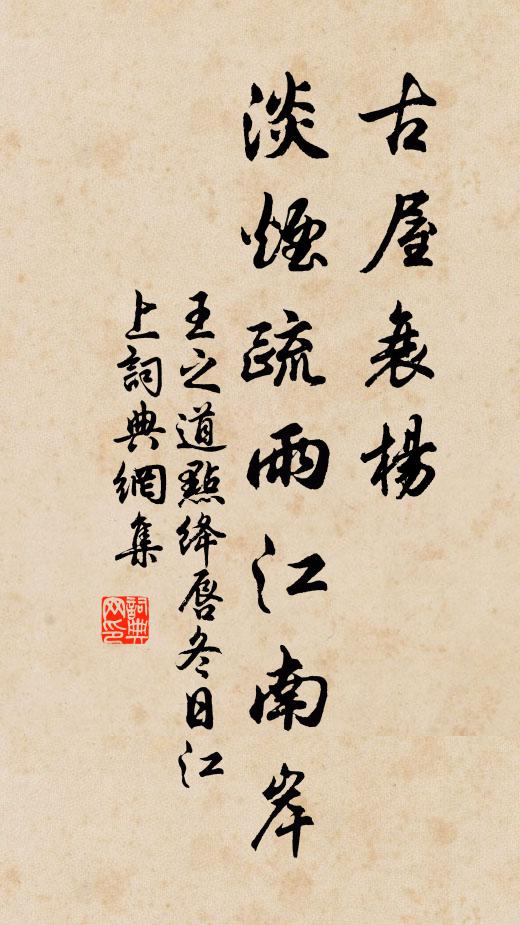 古屋衰楊
淡煙疏雨江南岸
王之道點絳唇冬日江
上詞典網集
詞典网印